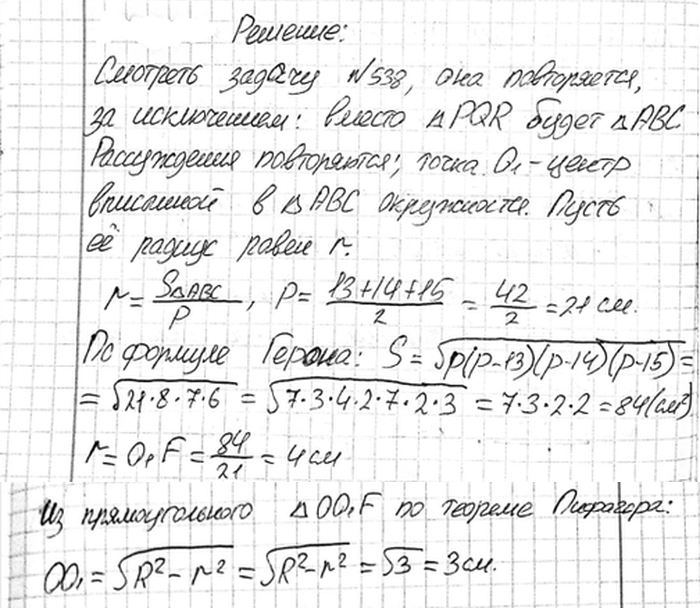 Решение:
Смотреть задачу №538, она повторяется,
за исключением: вместо △PQR будет △ABC
Рассуждения повторяются; точка O₁ - центр
вписанной в △ABC окружности. Пусть
её радиус равен r.
r = S△ABC / P, P = (13+14+15) / 2 = 42 / 2 = 21 см.
По формуле Герона: S = √(p(p-13)(p-14)(p-15)) =
= √(21·8·7·6) = √(7·3·4·2·7·2·3) = 7·3·2·2 = 84 (см²)
r = O₁F = 84 / 21 = 4 см
Из прямоугольного △OO₁F по теореме Пифагора:
OO₁ = √(R² - r²) = √(R² - r²) = √3 = 3 см.